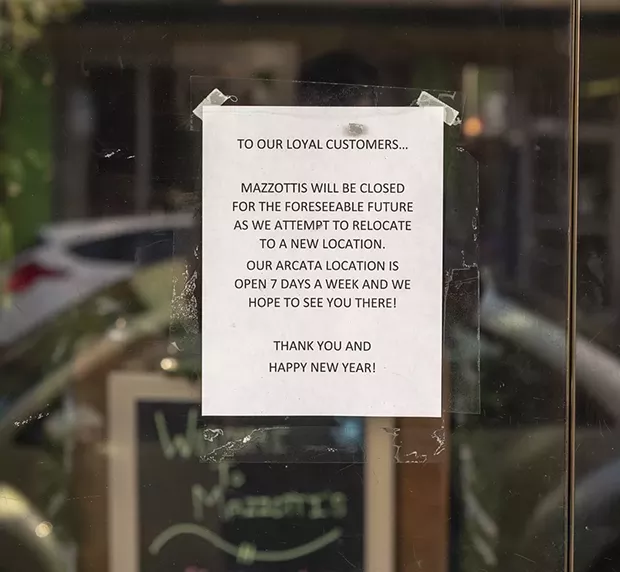 TO OUR LOYAL CUSTOMERS...
MAZZOTTIS WILL BE CLOSED
FOR THE FORESEEABLE FUTURE
AS WE ATTEMPT TO RELOCATE
TO A NEW LOCATION.
OUR ARCATA LOCATION IS
OPEN 7 DAYS A WEEK AND WE
HOPE TO SEE YOU THERE!
THANK YOU AND
HAPPY NEW YEAR!
To
Mazzotti's